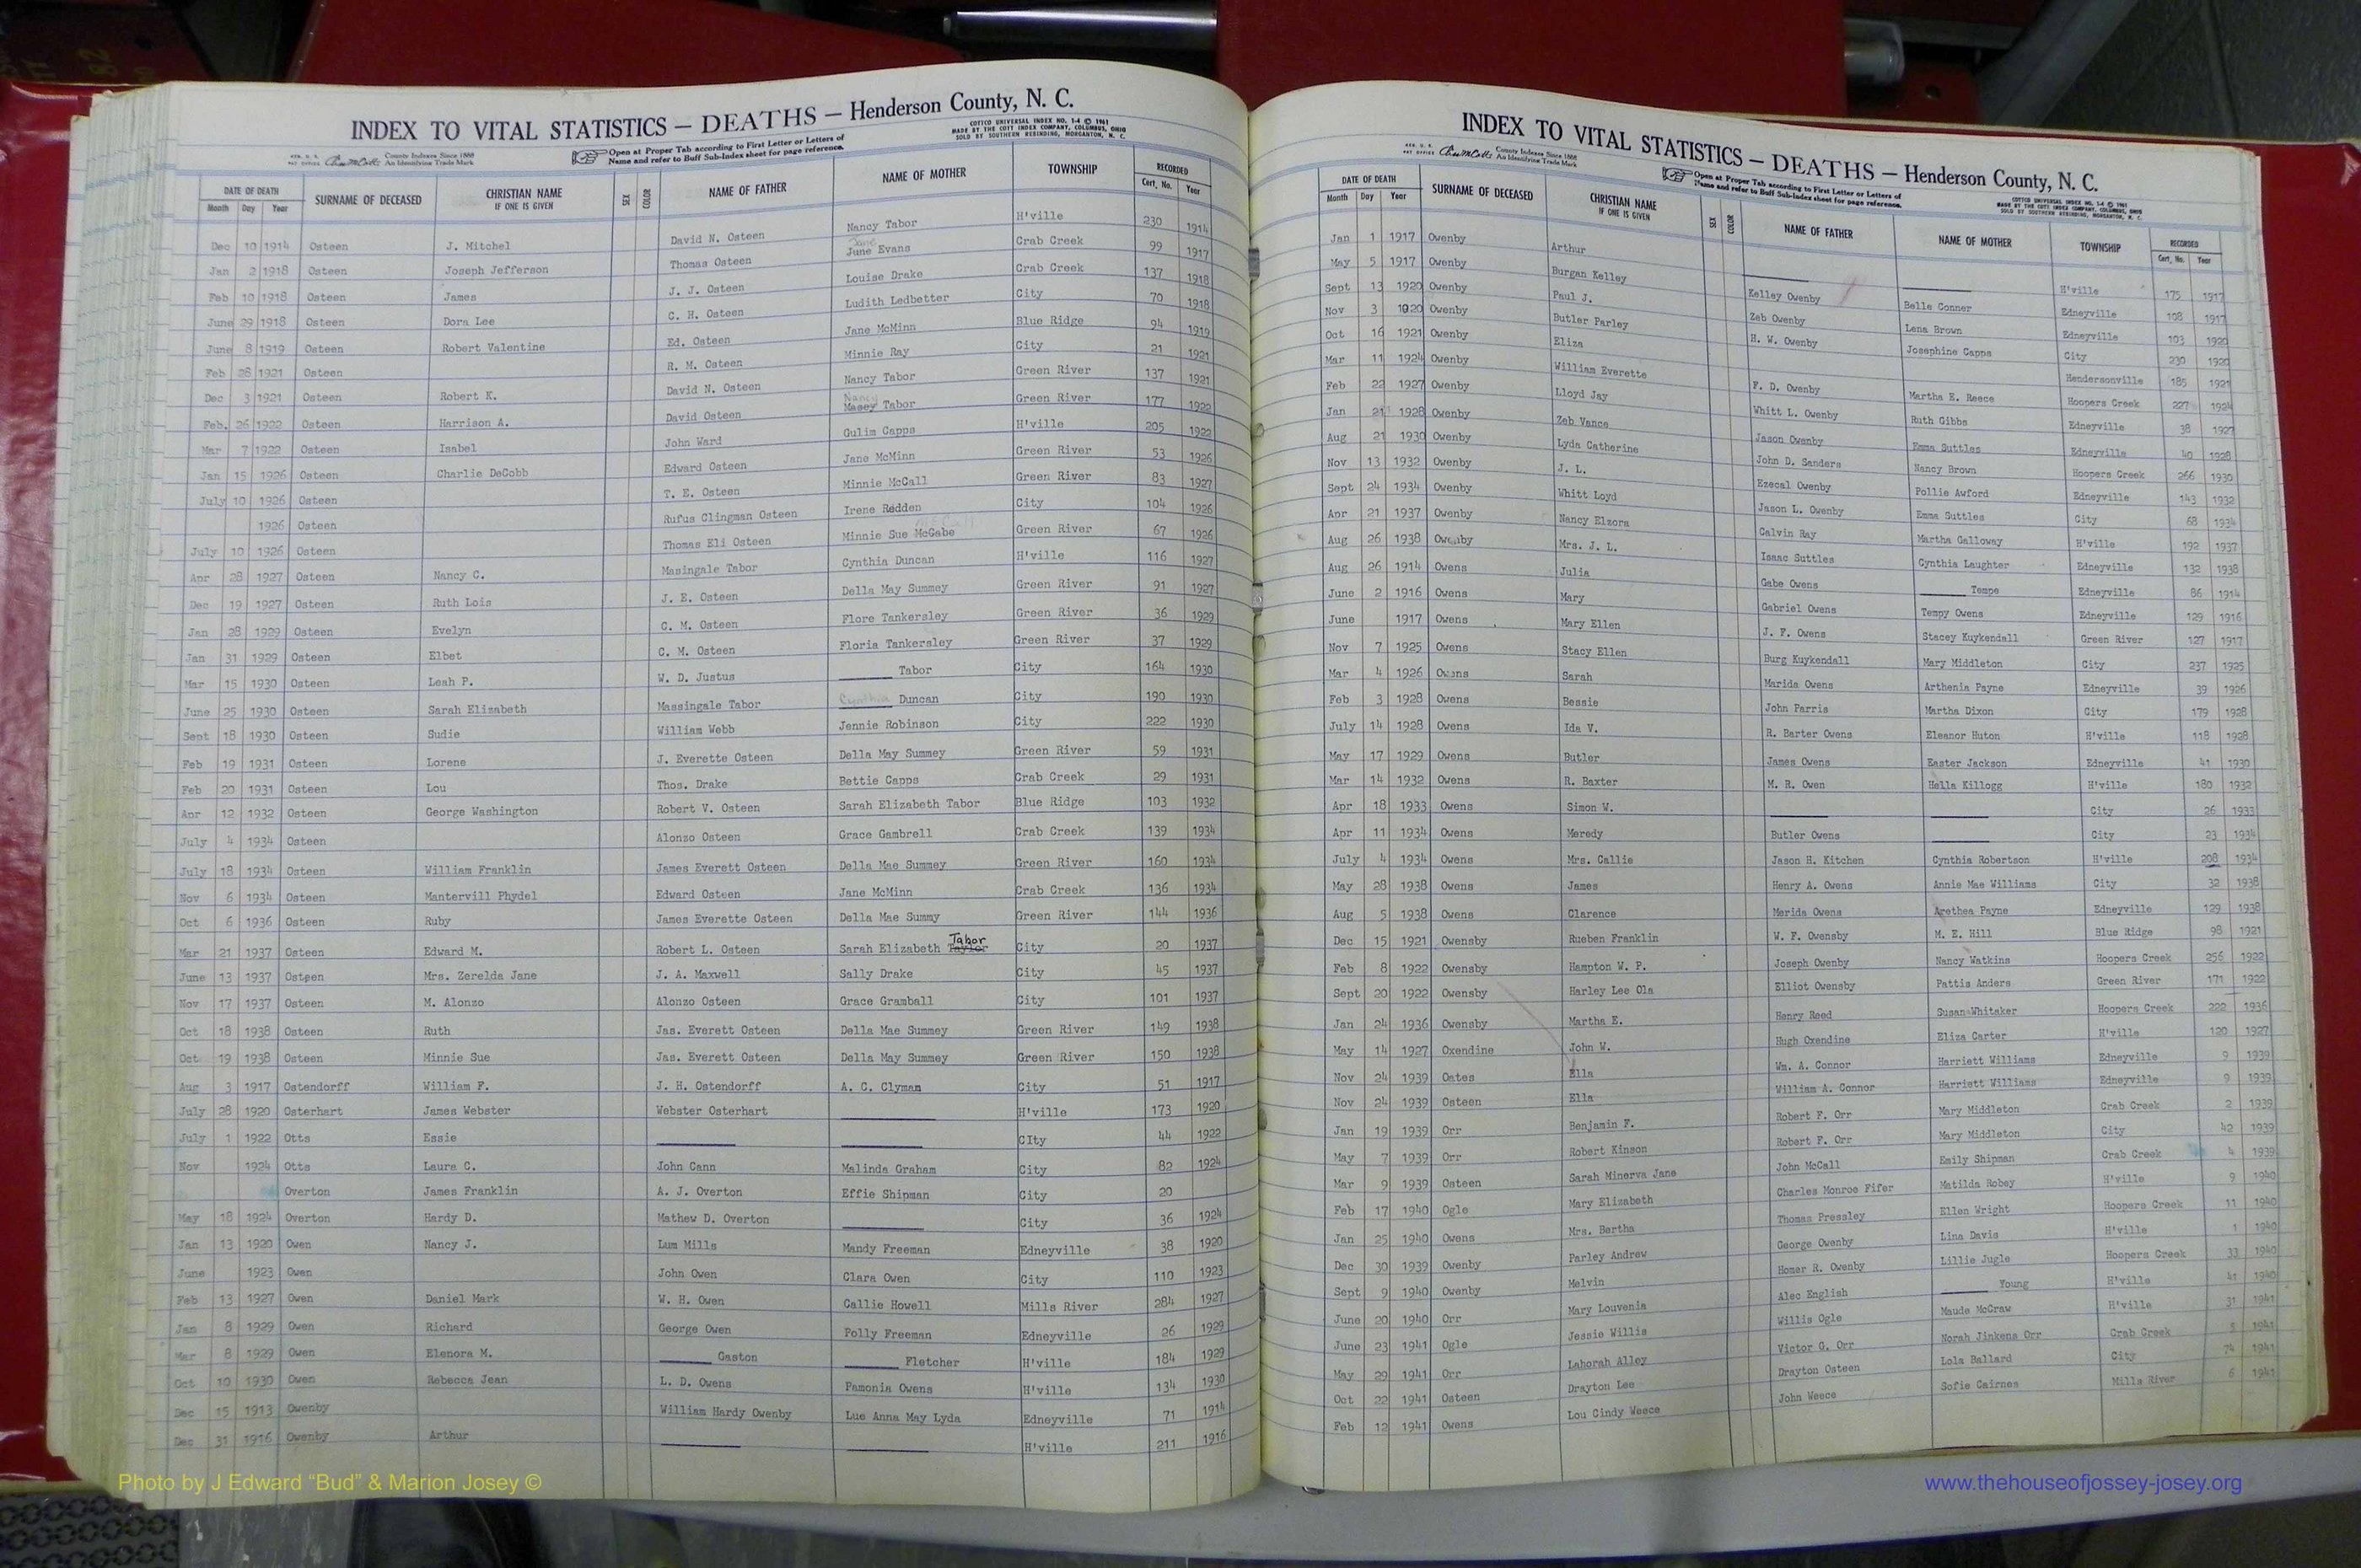 INDEX TO VITAL STATISTICS — DEATHS — Henderson County, N. C.
COTTCO UNIVERSAL INDEX NO. 1-4 © 1961
MADE BY THE COTT INDEX COMPANY, COLUMBUS, OHIO
SOLD BY SOUTHERN REBINDING, MORGANTON, N. C.
County Indexes Since 1888
An Identifying Trade Mark
Open at Proper Tab according to First Letter or Letters of
Name and refer to Buff Sub-Index sheet for page reference.
DATE OF DEATH SURNAME OF DECEASED CHRISTIAN NAME IF ONE IS GIVEN SEX COLOR NAME OF FATHER NAME OF MOTHER TOWNSHIP RECORDED
Month Day Year Cert. No. Year
Dec 10 1914 Osteen J. Mitchel David N. Osteen Nancy Tabor H'ville 230 1914
Jan 2 1918 Osteen Joseph Jefferson Thomas Osteen Jane June Evans Crab Creek 99 1917
Feb 10 1918 Osteen James J. J. Osteen Louise Drake Crab Creek 137 1918
June 29 1918 Osteen Dora Lee C. H. Osteen Ludith Ledbetter City 70 1918
June 8 1919 Osteen Robert Valentine Ed. Osteen Jane McMinn Blue Ridge 94 1919
Feb 28 1921 Osteen R. M. Osteen Minnie Ray City 21 1921
Dec 3 1921 Osteen Robert K. David N. Osteen Nancy Tabor Green River 137 1921
Feb. 26 1922 Osteen Harrison A. David Osteen Nancy Masey Tabor Green River 177 1922
Mar 7 1922 Osteen Isabel John Ward Gulim Capps H'ville 205 1922
Jan 15 1926 Osteen Charlie DeCobb Edward Osteen Jane McMinn Green River 53 1926
July 10 1926 Osteen T. E. Osteen Minnie McCall Green River 83 1927
1926 Osteen Rufus Clingman Osteen Irene Redden City 104 1926
July 10 1926 Osteen Thomas Eli Osteen Minnie Sue McGabe Green River 67 1926
Apr 28 1927 Osteen Nancy C. Masingale Tabor Cynthia Duncan H'ville 116 1927
Dec 19 1927 Osteen Ruth Lois J. E. Osteen Della May Summey Green River 91 1927
Jan 28 1929 Osteen Evelyn C. M. Osteen Flore Tankersley Green River 36 1929
Jan 31 1929 Osteen Elbet C. M. Osteen Floria Tankersley Green River 37 1929
Mar 15 1930 Osteen Leah P. W. D. Justus ______ Tabor City 164 1930
June 25 1930 Osteen Sarah Elizabeth Massingale Tabor Cynthia Duncan City 190 1930
Sept 18 1930 Osteen Sudie William Webb Jennie Robinson City 222 1930
Feb 19 1931 Osteen Lorene J. Everette Osteen Della May Summey Green River 59 1931
Feb 20 1931 Osteen Lou Thos. Drake Bettie Capps Crab Creek 29 1931
Apr 12 1932 Osteen George Washington Robert V. Osteen Sarah Elizabeth Tabor Blue Ridge 103 1932
July 4 1934 Osteen Alonzo Osteen Grace Gambrell Crab Creek 139 1934
July 18 1934 Osteen William Franklin James Everett Osteen Della Mae Summey Green River 160 1934
Nov 6 1934 Osteen Mantervill Phydel Edward Osteen Jane McMinn Crab Creek 136 1934
Oct 6 1936 Osteen Ruby James Everette Osteen Della Mae Summy Green River 144 1936
Mar 21 1937 Osteen Edward M. Robert L. Osteen Sarah Elizabeth Taylor Tabor City 20 1937
June 13 1937 Osteen Mrs. Zerelda Jane J. A. Maxwell Sally Drake City 45 1937
Nov 17 1937 Osteen M. Alonzo Alonzo Osteen Grace Gramball City 101 1937
Oct 18 1938 Osteen Ruth Jas. Everett Osteen Della Mae Summey Green River 149 1938
Oct 19 1938 Osteen Minnie Sue Jas. Everett Osteen Della May Summey Green River 150 1938
Aug 3 1917 Ostendorff William F. J. H. Ostendorff A. C. Clyman City 51 1917
July 28 1920 Osterhart James Webster Webster Osterhart ______ H'ville 173 1920
July 1 1922 Otts Essie ______ ______ CIty 44 1922
Nov 1924 Otts Laura C. John Cann Malinda Graham City 82 1924
Overton James Franklin A. J. Overton Effie Shipman City 20
May 18 1924 Overton Hardy D. Mathew D. Overton ______ City 36 1924
Jan 13 1920 Owen Nancy J. Lum Mills Mandy Freeman Edneyville 38 1920
June 1923 Owen John Owen Clara Owen City 110 1923
Feb 13 1927 Owen Daniel Mark W. H. Owen Callie Howell Mills River 284 1927
Jan 8 1929 Owen Richard George Owen Polly Freeman Edneyville 26 1929
Mar 8 1929 Owen Elenora M. ______ Gaston ______ Fletcher H'ville 184 1929
Oct 10 1930 Owen Rebecca Jean L. D. Owens Pamonia Owens H'ville 134 1930
Dec 15 1913 Owenby William Hardy Owenby Lue Anna May Lyda Edneyville 71 1914
Dec 31 1916 Owenby Arthur ______ ______ H'ville 211 1916
INDEX TO VITAL STATISTICS — DEATHS — Henderson County, N. C.
County Indexes Since 1888
An Identifying Trade Mark
Open at Proper Tab according to First Letter or Letters of
Name and refer to Buff Sub-Index sheet for page reference.
COTTCO UNIVERSAL INDEX NO. 1-4 © 1961
MADE BY THE COTT INDEX COMPANY, COLUMBUS, OHIO
SOLD BY SOUTHERN REBINDING, MORGANTON, N. C.
DATE OF DEATH SURNAME OF DECEASED CHRISTIAN NAME IF ONE IS GIVEN SEX COLOR NAME OF FATHER NAME OF MOTHER TOWNSHIP RECORDED
Month Day Year Cert. No. Year
Jan 1 1917 Owenby Arthur ______ ______ H'ville 175 1917
May 5 1917 Owenby Burgan Kelley Kelley Owenby Belle Conner Edneyville 108 1917
Sept 13 1920 Owenby Paul J. Zeb Owenby Lena Brown Edneyville 103 1920
Nov 3 1920 Owenby Butler Parley H. W. Owenby Josephine Capps City 230 1920
Oct 16 1921 Owenby Eliza Hendersonville 185 1921
Mar 11 1924 Owenby William Everette F. D. Owenby Martha E. Reece Hoopers Creek 227 1924
Feb 22 1927 Owenby Lloyd Jay Whitt L. Owenby Ruth Gibbs Edneyville 38 1927
Jan 21 1928 Owenby Zeb Vance Jason Owenby Emma Suttles Edneyville 40 1928
Aug 21 1930 Owenby Lyda Catherine John D. Sanders Nancy Brown Hoopers Creek 266 1930
Nov 13 1932 Owenby J. L. Ezecal Owenby Pollie Awford Edneyville 143 1932
Sept 24 1934 Owenby Whitt Loyd Jason L. Owenby Emma Suttles City 68 1934
Apr 21 1937 Owenby Nancy Elzora Calvin Ray Martha Galloway H'ville 192 1937
Aug 26 1938 Owenby Mrs. J. L. Isaac Suttles Cynthia Laughter Edneyville 132 1938
Aug 26 1914 Owens Julia Gabe Owens ______ Tempe Edneyville 86 1914
June 2 1916 Owens Mary Gabriel Owens Tempy Owens Edneyville 129 1916
June 1917 Owens Mary Ellen J. F. Owens Stacey Kuykendall Green River 127 1917
Nov 7 1925 Owens Stacy Ellen Burg Kuykendall Mary Middleton City 237 1925
Mar 4 1926 Owens Sarah Marida Owens Arthenia Payne Edneyville 39 1926
Feb 3 1928 Owens Bessie John Parris Martha Dixon City 179 1928
July 14 1928 Owens Ida V. R. Barter Owens Eleanor Huton H'ville 118 1928
May 17 1929 Owens Butler James Owens Easter Jackson Edneyville 41 1930
Mar 14 1932 Owens R. Baxter M. R. Owen Hella Killogg H'ville 180 1932
Apr 18 1933 Owens Simon W. ______ ______ City 26 1933
Apr 11 1934 Owens Meredy Butler Owens ______ City 23 1934
July 4 1934 Owens Mrs. Callie Jason H. Kitchen Cynthia Robertson H'ville 208 1934
May 28 1938 Owens James Henry A. Owens Annie Mae Williams City 32 1938
Aug 5 1938 Owens Clarence Merida Owens Arethea Payne Edneyville 129 1938
Dec 15 1921 Owensby Rueben Franklin W. F. Owensby M. E. Hill Blue Ridge 98 1921
Feb 8 1922 Owensby Hampton W. P. Joseph Owenby Nancy Watkins Hoopers Creek 256 1922
Sept 20 1922 Owensby Harley Lee Ola Elliot Owensby Pattis Anders Green River 171 1922
Jan 24 1936 Owensby Martha E. Henry Reed Susan Whitaker Hoopers Creek 222 1936
May 14 1927 Oxendine John W. Hugh Oxendine Eliza Carter H'ville 120 1927
Nov 24 1939 Oates Ella Wm. A. Connor Harriett Williams Edneyville 9 1939
Nov 24 1939 Osteen Ella William A. Connor Harriett Williams Edneyville 9 1939
Jan 19 1939 Orr Benjamin F. Robert F. Orr Mary Middleton Crab Creek 2 1939
May 7 1939 Orr Robert Kinson Robert F. Orr Mary Middleton City 42 1939
Mar 9 1939 Osteen Sarah Minerva Jane John McCall Emily Shipman Crab Creek 4 1939
Feb 17 1940 Ogle Mary Elizabeth Charles Monroe Fifer Matilda Robsy H'ville 9 1940
Jan 25 1940 Owens Mrs. Bertha Thomas Pressley Ellen Wright Hoopers Creek 11 1940
Dec 30 1939 Owenby Parley Andrew George Owenby Lina Davis H'ville 1 1940
Sept 9 1940 Owenby Melvin Homer R. Owenby Lillie Jugle Hoopers Creek 33 1940
June 20 1940 Orr Mary Louvenia Alec English ______ Young H'ville 41 1940
June 23 1941 Ogle Jessie Willis Willis Ogle Maude McCraw H'ville 31 1941
May 29 1941 Orr Lahorah Alley Victor G. Orr Norah Jinkens Orr Crab Creek 1941
Oct 22 1941 Osteen Drayton Lee Drayton Osteen Lola Ballard City 74 1941
Feb 12 1941 Owens Lou Cindy Weece John Weece Sofie Cairnes Mills River 6 1941
Photo by J Edward “Bud” & Marion Josey ©
www.thehouseofjossey-josey.org